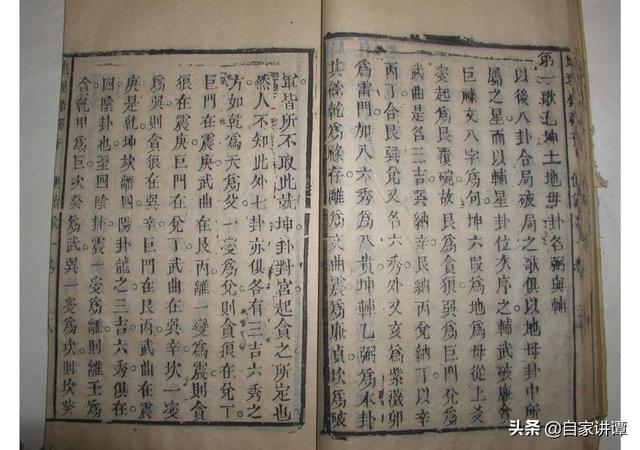 第一歌乙坤土地母卦名弼與輔
以後八卦合局破局之歌俱以地母卦中所
屬之星而以輔星卦位次序之輔武破廉貪
巨祿文八字爲何坤六叚爲地爲母從上爻
變起爲艮覆碗故艮爲貪狼巽爲巨門兌爲
武曲是名三吉巽納辛艮納丙兌納丁以辛
丙丁合艮巽兌又名六秀外又亥爲紫薇卯
爲雷門加八六秀爲八貴坤輔乙弼爲本卦
其餘乾爲祿存離爲文曲震爲廉貞坎爲破
軍皆所不敢此就坤卦對宮起貪之所定也
然人不知此外七卦亦俱各有三吉六秀之
方如乾爲天爲父一變爲兌則貪狼在兌丁
巨門在震庚武曲在艮丙離一變爲震則貪
狼在震庚巨門在兌丁武曲在巽辛坎一變
爲巽則貪狼在巽辛巨門在艮丙武曲在震
庚是乾坤坎離四陽卦龍之三吉六秀俱在
四陰卦也至四陰卦震一變爲離則離壬爲
貪乾甲爲巨癸爲武巽一變爲坎則坎癸
头条 @自家讲谭